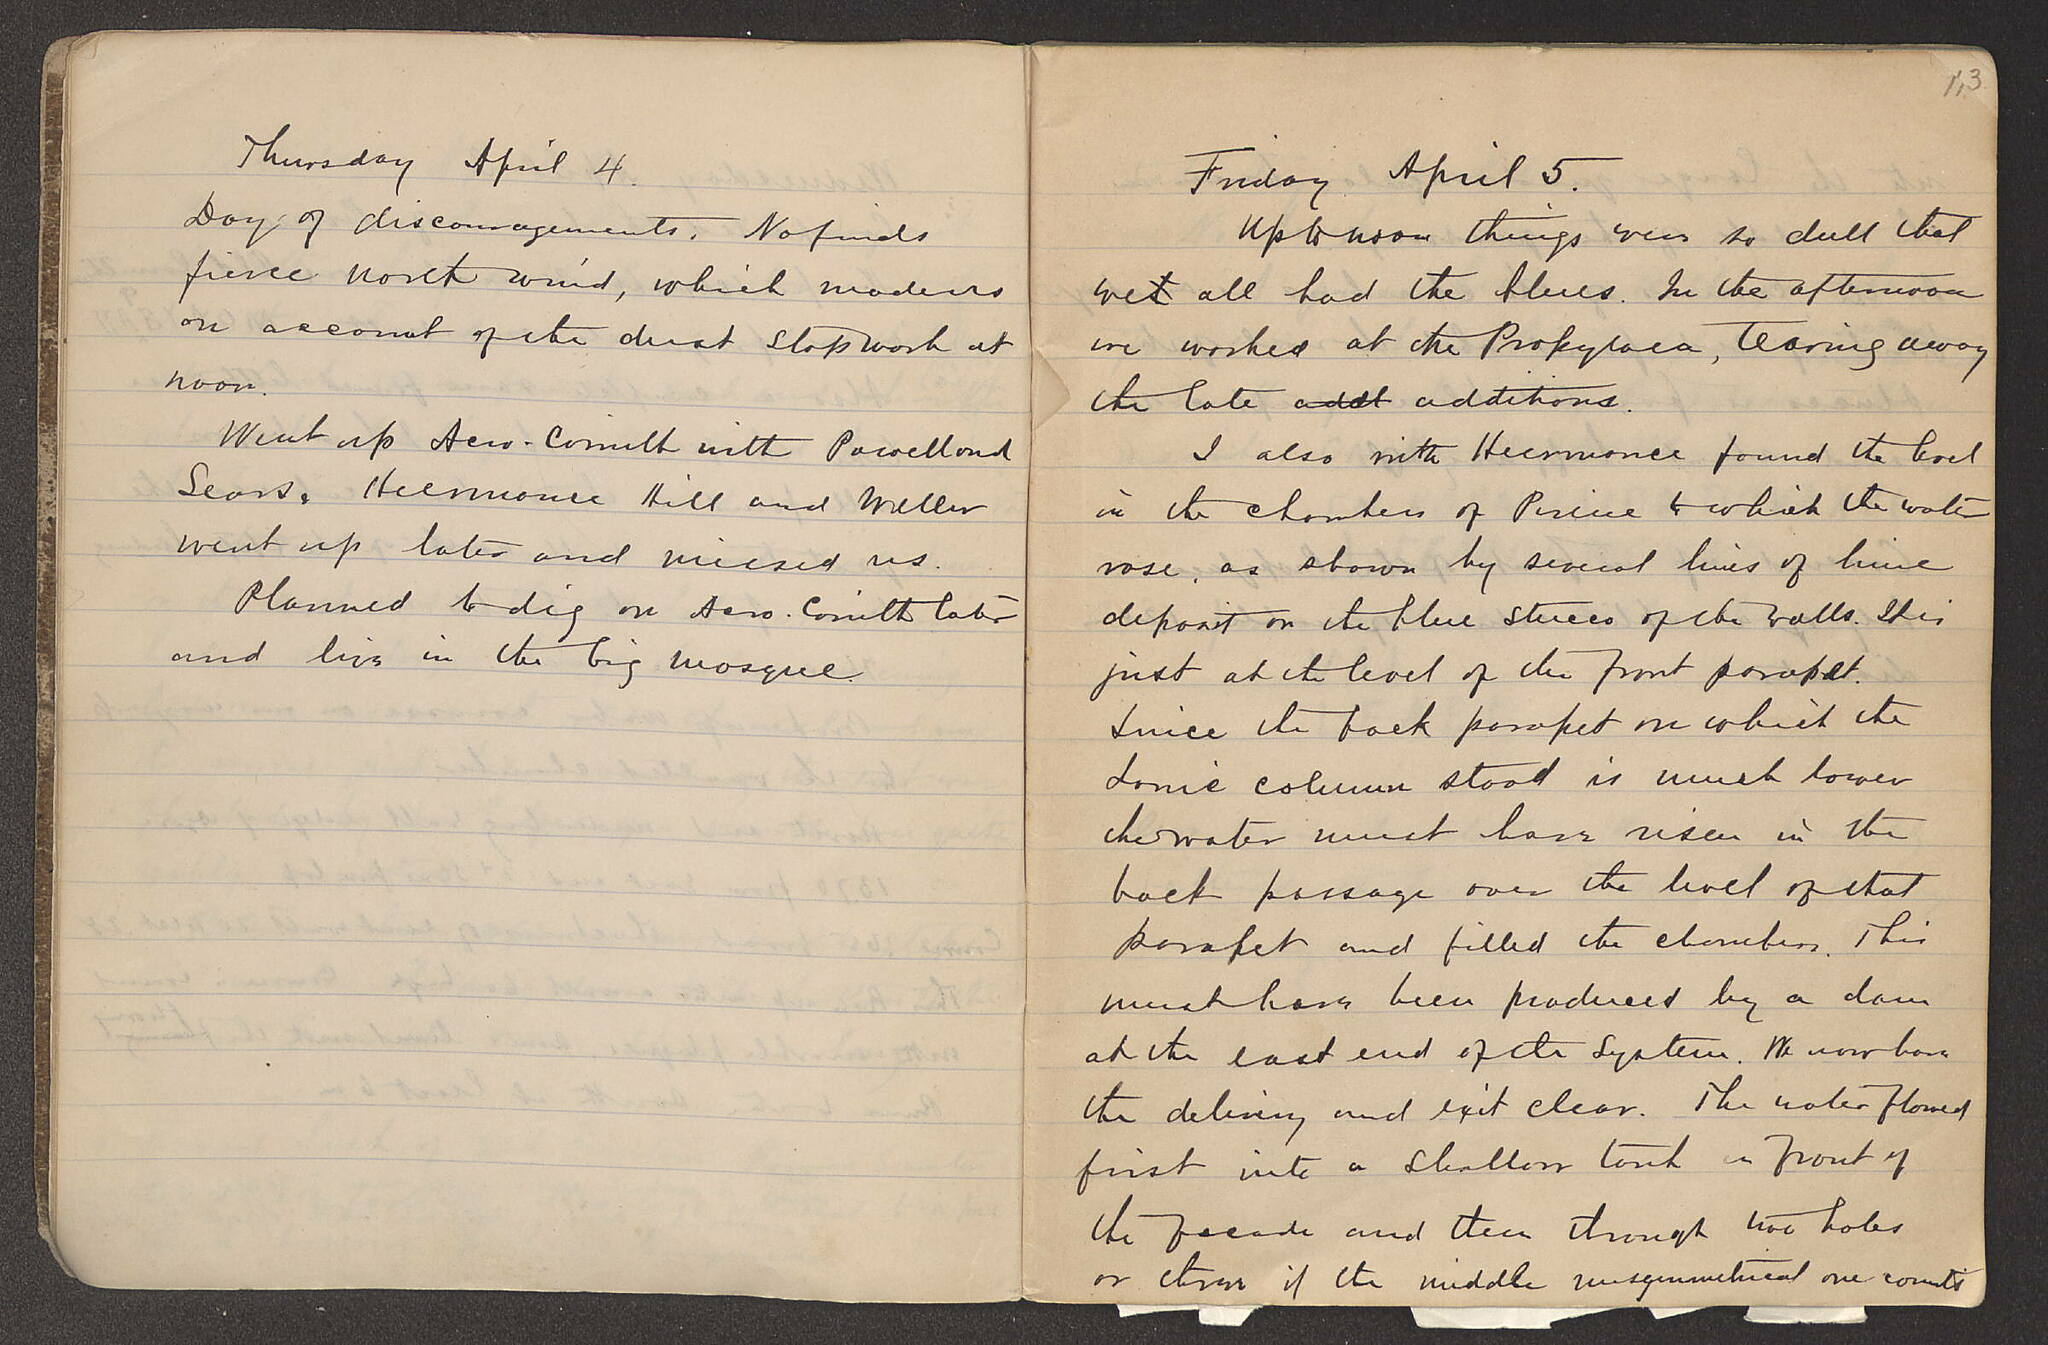 Thursday April 4.
Day of discouragements. No finds
fierce north wind, which made us
on account of the dust stop work at
noon.
Went up Acro-Corinth with Powell and
Sears. Heermance Hill and Weller
went up later and missed us.
Planned to dig on Acro-Corinth later
and live in the big mosque.
113
Friday April 5.
Up to noon things were so dull that
we all had the blues. In the afternoon
we worked at the Propylaea, tearing away
the late addt additions.
I also with Heermance found the level
in the chambers of Pirene to which the water
rose, as shown by several lines of lime
deposit on the blue stucco of the walls. It is
just at the level of the front parapet.
Since the back parapet on which the
Ionic column stood is much lower
the water must have risen in the
back passage over the level of that
parapet and filled the chambers. This
must have been produced by a dam
at the east end of the system. We now have
the delivery and exit clear. The water flowed
first into a shallow tank in front of
the facade and then through two holes
or three if the middle unsymmetrical one counts